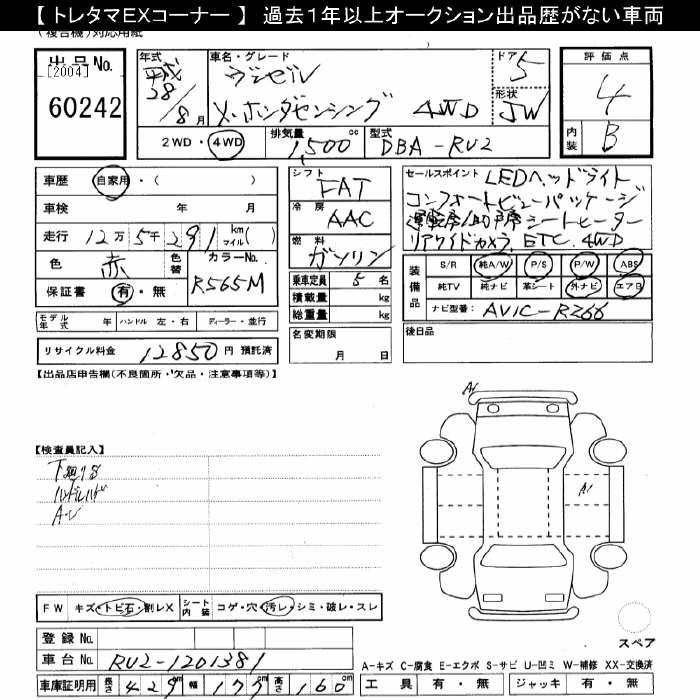 【 トレタマEXコーナー 】 過去1年以上オークション出品歴がない車両
(複合機)対応用紙
出品No.
[2004]
60242
年式
平成
28/8月
車名・グレード
X・ホンダセンシング 4WD
ドア 5
形状 JW
評価点
4
内装 B
2WD・4WD
排気量 1,500 cc
型式 DBA-RU2
車歴 自家用・( )
車検 年 月
走行 12万5千291 km マイル( )
色 赤 色替
カラーNo. R565M
保証書 有・無
シフト FAT
冷房 AAC
燃料 ガソリン
乗車定員 5 名
積載量 kg
総重量 kg
セールスポイント LEDヘッドライト
コンフォートビューパッケージ
運転席/助手席シートヒーター
リアワイドカメラ, ETC, 4WD
装備品
S/R 純A/W P/S P/W ABS
純TV 純ナビ 革シート 外ナビ エアB
ナビ型番: AVIC-RZ66
モデル年式 年 ハンドル 左・右 ディーラー・並行
リサイクル料金 12850 円 預託済
名変期限
月 日
後日品
【出品店申告欄(不良箇所・欠品・注意事項等)】
【検査員記入】
A1
A1
FW キズ・トビ石・割レX シート内装 コゲ・穴・汚レ・シミ・破レ・スレ
登録No.
車台No. RU2-1201381
車庫証明用 長さ 429 cm 幅 177 cm 高さ 160 cm
スペア
A-キズ C-腐食 E-エクボ S-サビ U-凹ミ W-補修 XX-交換済
工具 有・無 ジャッキ 有・無